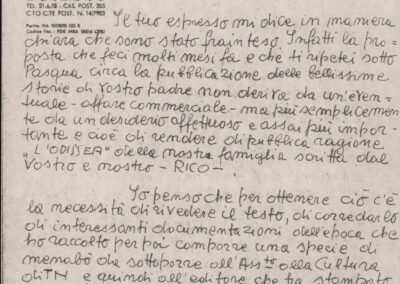 TEL. 21.6.78 - CAS. POST. 205
C.TO C.TE POST. N. 14/7903
Il tuo espresso mi dice in maniera
chiara che sono stato frainteso. Infatti la pro=
posta che feci molti mesi fa e che ti ripetei sotto
Pasqua circa la pubblicazione delle bellissime
storie di vostro padre non deriva da un'even=
tuale - affare commerciale - ma più semplicemen
te da un desiderio affettuoso e assai più impor=
tante e cioè di rendere di pubblica ragione
"L'ODISSEA" della nostra famiglia scritta dal
vostro e nostro - RICO -.
Io penso che per ottenere ciò c'è
la necessità di rivedere il testo, di corredarlo
di interessanti documentazioni dell'epoca che
ho raccolto per poi comporre una specie di
menabò da sottoporre all'Ass.to alla Cultura
di TN e quindi all'editore che ha stampato